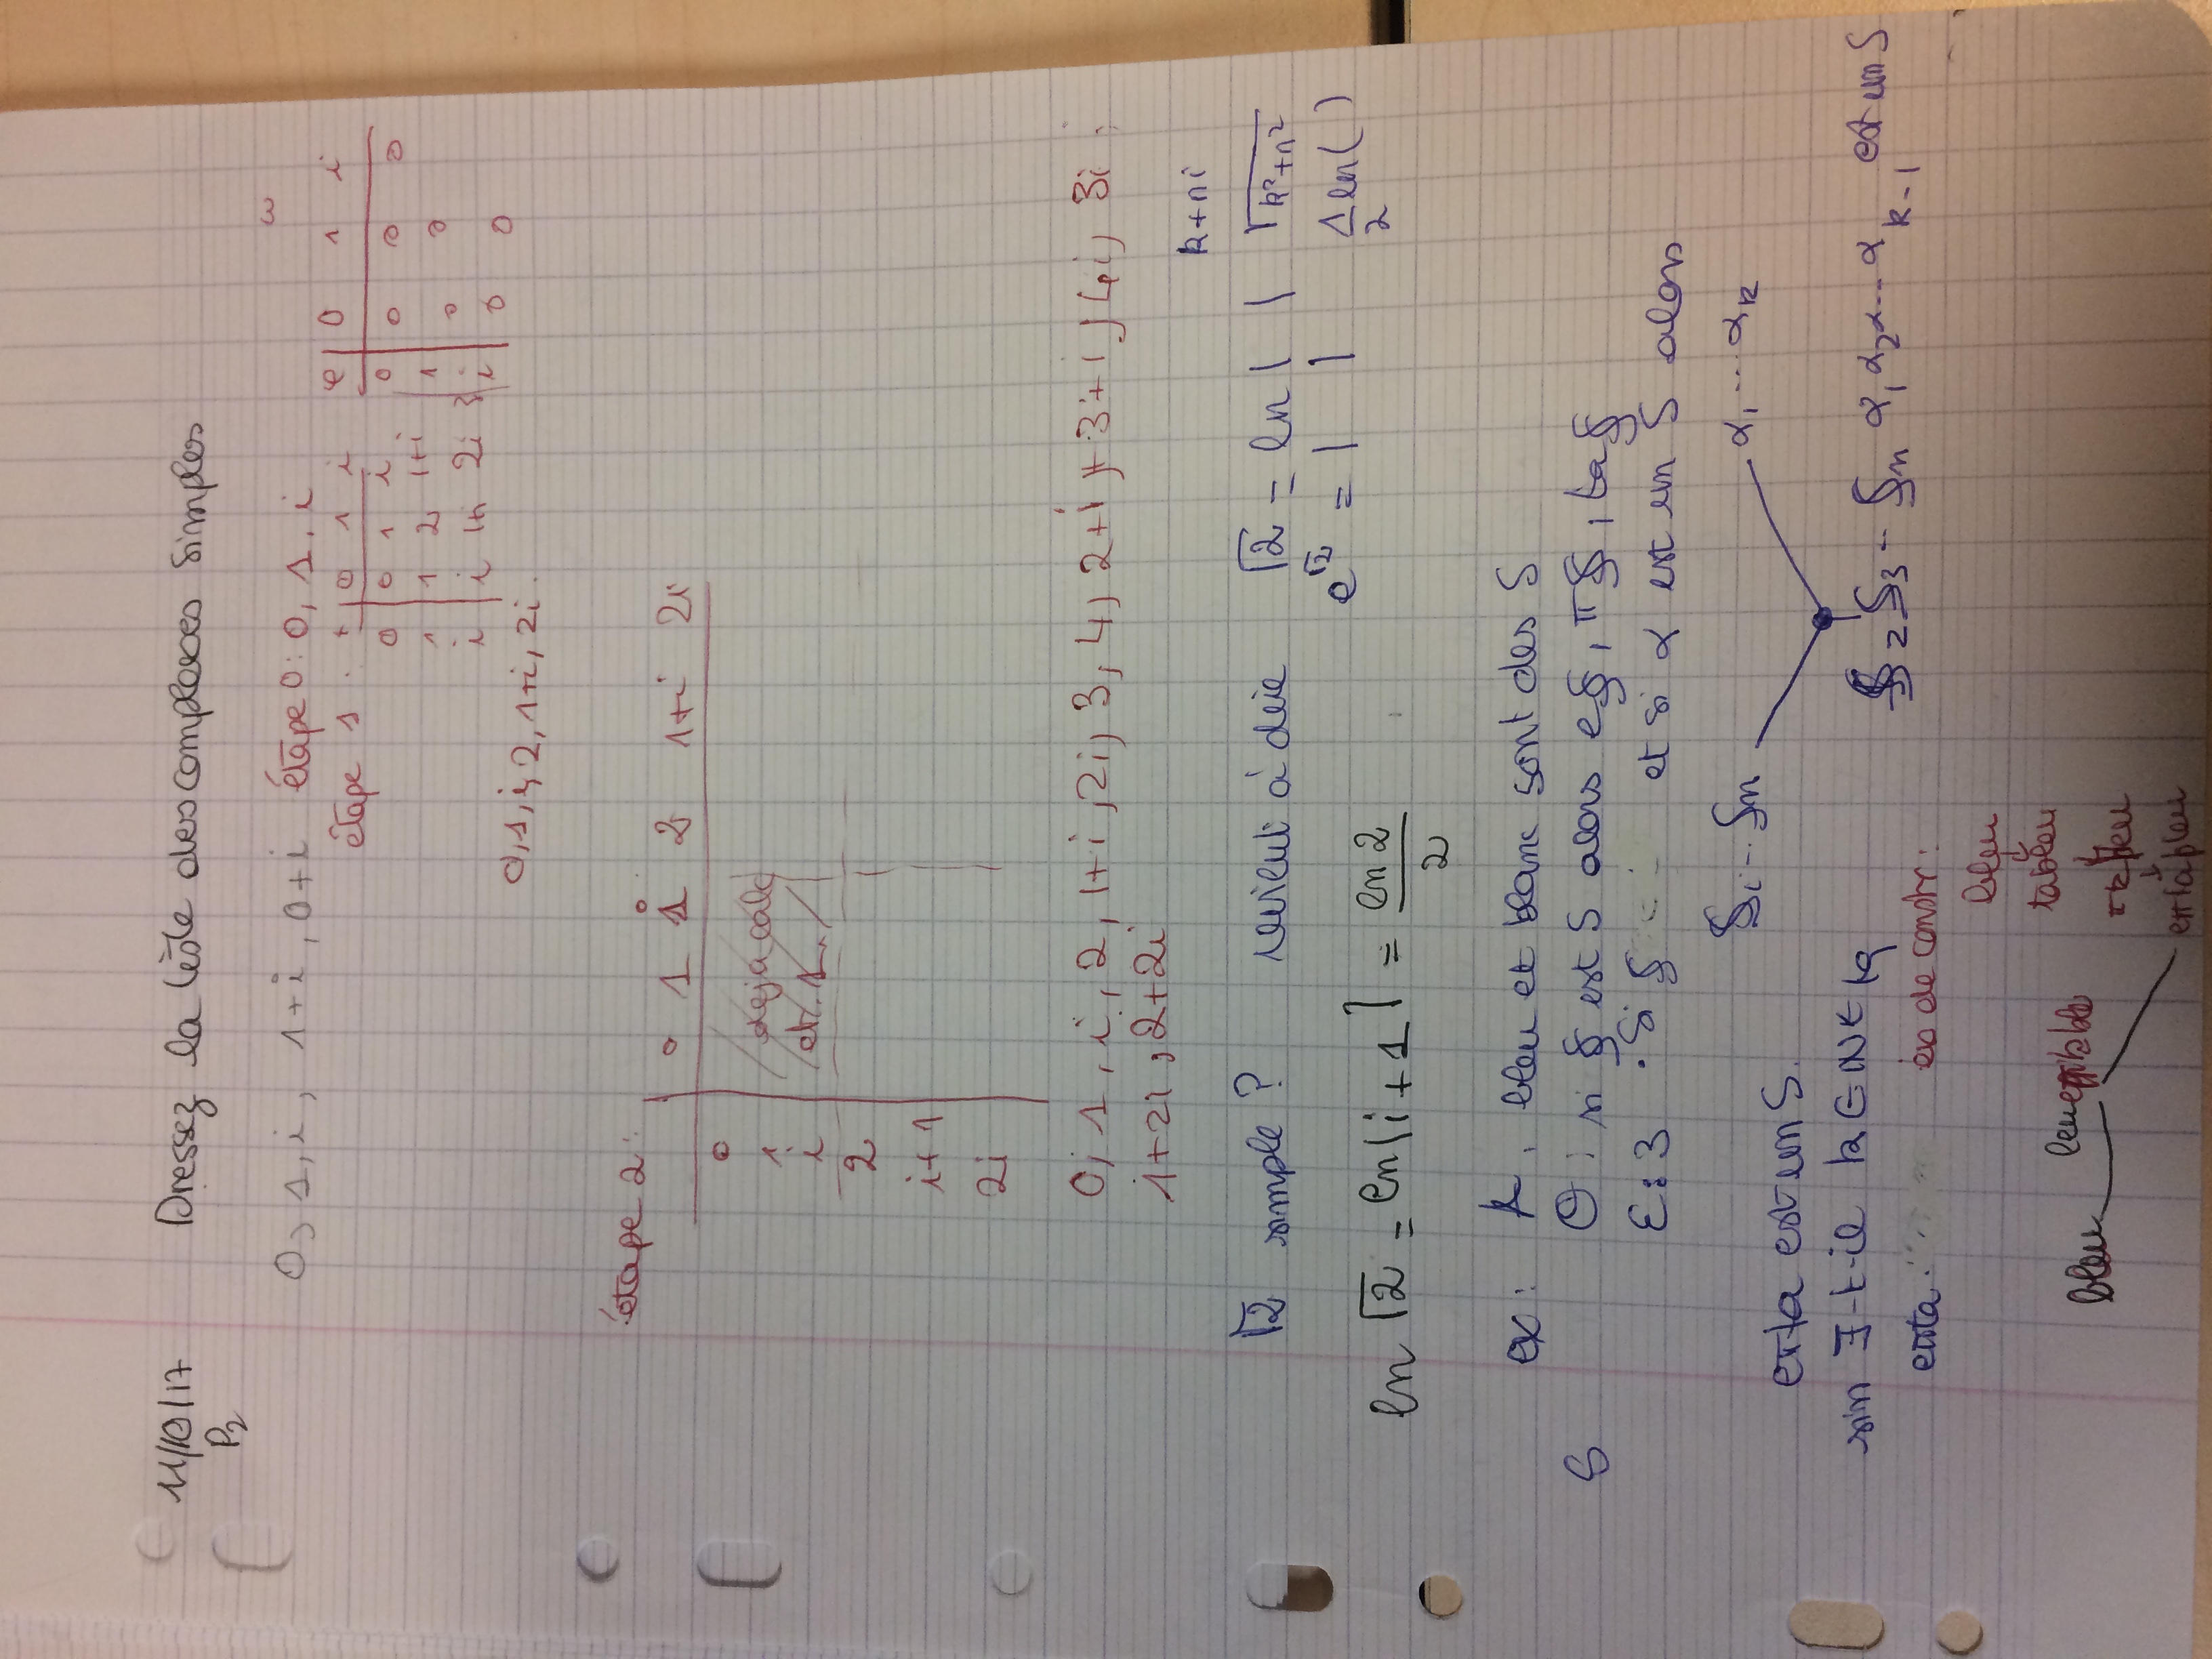 11/10/17 Dressez la liste des complexes simples
P2
0, 1, i, 1+i, 0+i étape 0: 0, 1, i
étape 1 : + | 0 1 i
0 | 0 1 i
1 | 1 2 1+i
i | i 1+i 2i
e | 0 1 i
0 | 0 0 0
1 | 0 0
i | 0 0
0, 1, i, 2, 1+i, 2i.
étape 2:
0 1 i 2 1+i 2i
0
1 deja calc
i et. 1.
2
i+1
2i
0, 1, i, 2, 1+i, 2i, 3, 4, 2+i, 3+i, 4i, 3i
1+2i, 2+2i
k+ni
√2 simple? revient à dire √2 = ln | | √k²+n²
e^√2 = | | 1/2 ln( )
ln √2 = ln|i+1| = ln 2 / 2
ex: bleu et blanc sont des S
S Θ: si § est S alors e§, π§, ta§
ε: 3 . Si § et si α est un S alors
§i...§n α1...αk
eπta est un S.
§2 §3 - §n α1 α2 α... αk-1 est un S
sin ∃-t-il k ∈ N tq
eπta
ex de constr:
bleu
tableu
bleu